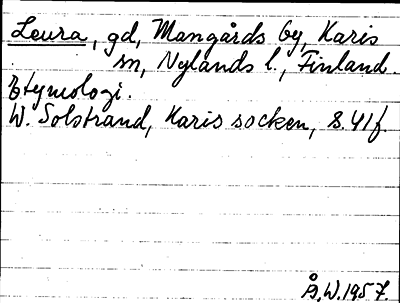 Leura, gd, Mangårds by, Karis
sn, Nylands l., Finland.
Etymologi.
W. Solstrand, Karis socken, s. 41f.
Å.W. 1957.